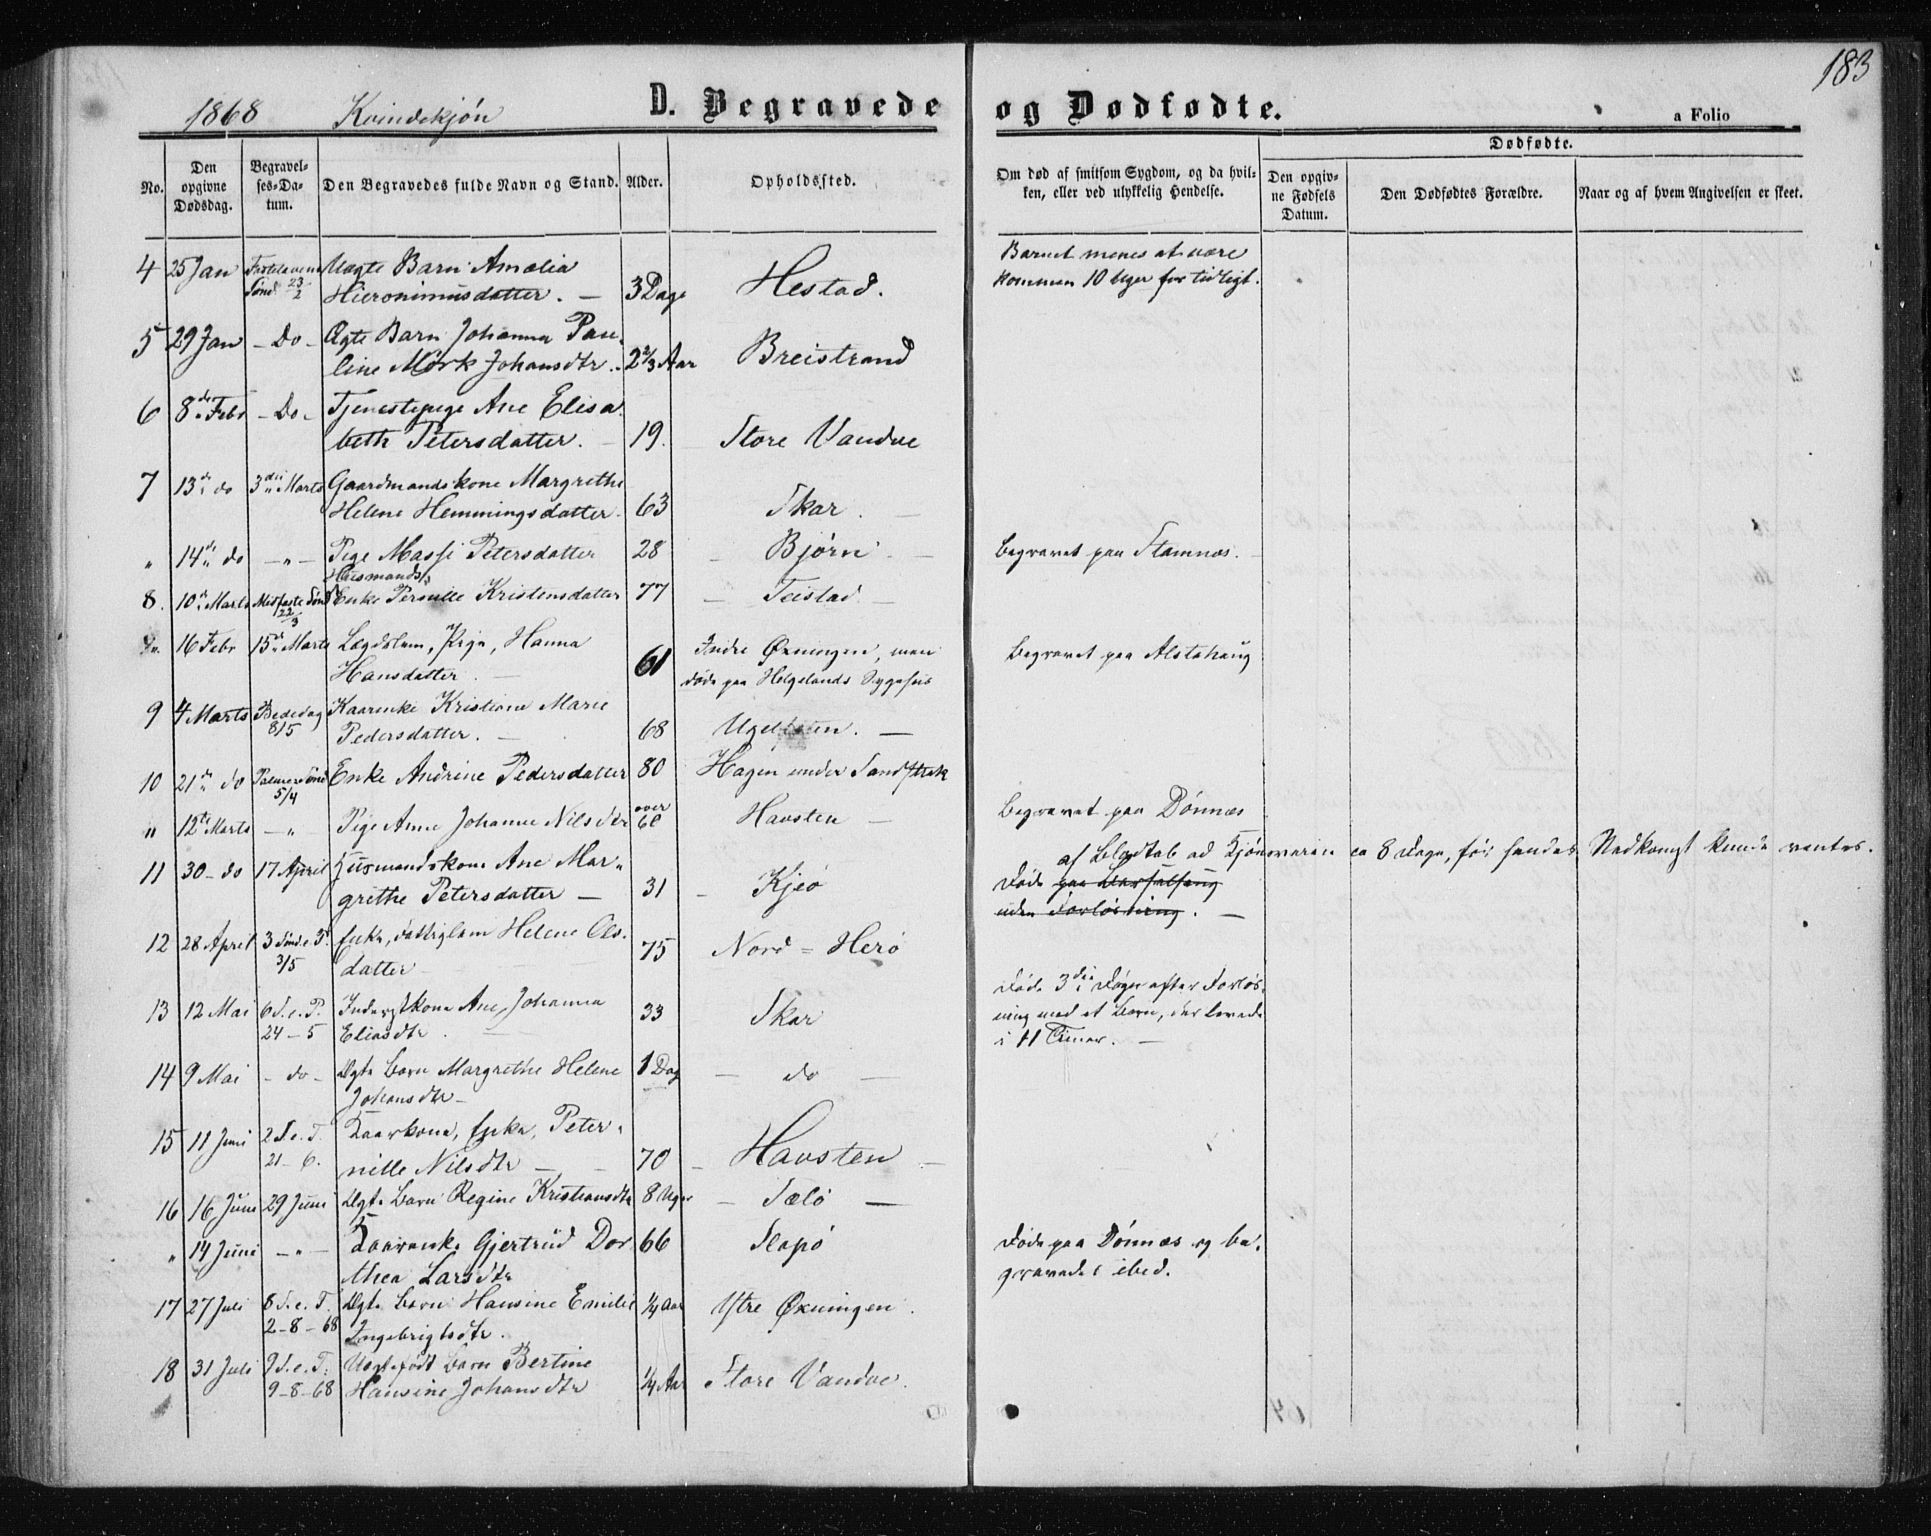 183
1868 Kvindekjøn D. Begravede og Dødfødte. a Folio
Dødfødte.
No. Den opgivne Dødsdag. Begravelses-Datum. Den Begravedes fulde Navn og Stand. Alder. Opholdssted. Om død af smitsom Sygdom, og da hvilken, eller ved ulykkelig Hendelse. Den opgivne Fødsels Datum. Den Dødfødtes Forældre. Naar og af hvem Angivelsen er skeet.
4 25 Jan Fastelavens Uægte Barn Amalia Barnet menes at være
Sønd 23/2 Hieronimusdatter. — 3 Dage Hestad. kommen 10 Uger for tidligt.
5 29 Jan - Do - Ægte Barn Johanna Pau-
line Mørk Johansdtr. 2 2/3 Aar Breistrand
6 8de Febr - Do - Tjenestepige Ane Elisa-
beth Petersdatter. 19. Store Vandve
7 13de do 3die Marts Gaardmandskone Margrethe
Helene Hemmingsdatter. 63 Skar.
" 14de do - " - Pige Massi Petersdatter 28 Bjørn Begravet paa Stamnæs.
Husmands
8. 10de Marts Midfaste Sønd Enke Pernille Kristensdatter 77 Teistad
22/3
16 Febr 15de Marts Lægdslem, Pige, Hanna Indre Øxningen, men Begravet paa Alstahaug
Hansdatter 61 døde paa Helgelands Sygehus
9 4 Marts Bededag Kaarenke Kristiane Marie
8/5 Pedersdatter. 68
10 21de do Palmesønd Enke Andrine Pedersdatter 80 Hagen under Sandstrak
5/4
" 12te Marts - " - Pige Anne Johanne Nilsdtr over 60 Havsten — Begravet paa Dønnæs
af Blodtab ad Kjønsveien ca 8 Dage, før hendes Nedkomst kunde ventes.
11 30 - do 17 April Husmandskone Ane Mar-
grethe Petersdatter — 31 Kjeø Døde paa Barselseng
uden Forløsning. —
12 28 April 3 Sønd e. P Enke, Fattiglem Helene Ols-
3/5 datter 75 Nord = Herø
13 12 Mai 6 S. e. P. Inderstkone Ane Johanna 33 Skar Døde 3die Døgn efter Forløs-
24 - 5 Eliasdtr. ning med et Barn, der levede
i 11 Timer. —
14 9 Mai - do - Ægte Barn Margrethe Helene 1 Dag — do —
Johansdtr —
15 11 Juni 2 S. e. T. Kaarkone, Enke, Peter-
21 - 6. nille Nilsdtr 70 Havsten
16 16 Juni 29 Juni Ægte Barn Regine Kristiansdtr 8 Uger Tælø —
" 14 Juni - " - Kaarenke Gjertrud Dor 66 Slapø Døde paa Dønnæs og be-
thea Larsdtr gravedes ibid.
17 27 Juli 8 S. e. T. Ægte Barn Hansine Emilie 1/4 Aar Ytre Øxningen.
2 - 8 - 68 Ingebrigtsdtr.
18 31 Juli 9 S. e. T. Uægtefødt Barn Bertine
9 - 8 - 68 Hansine Johansdtr 1/4 Aar Store Vandve.